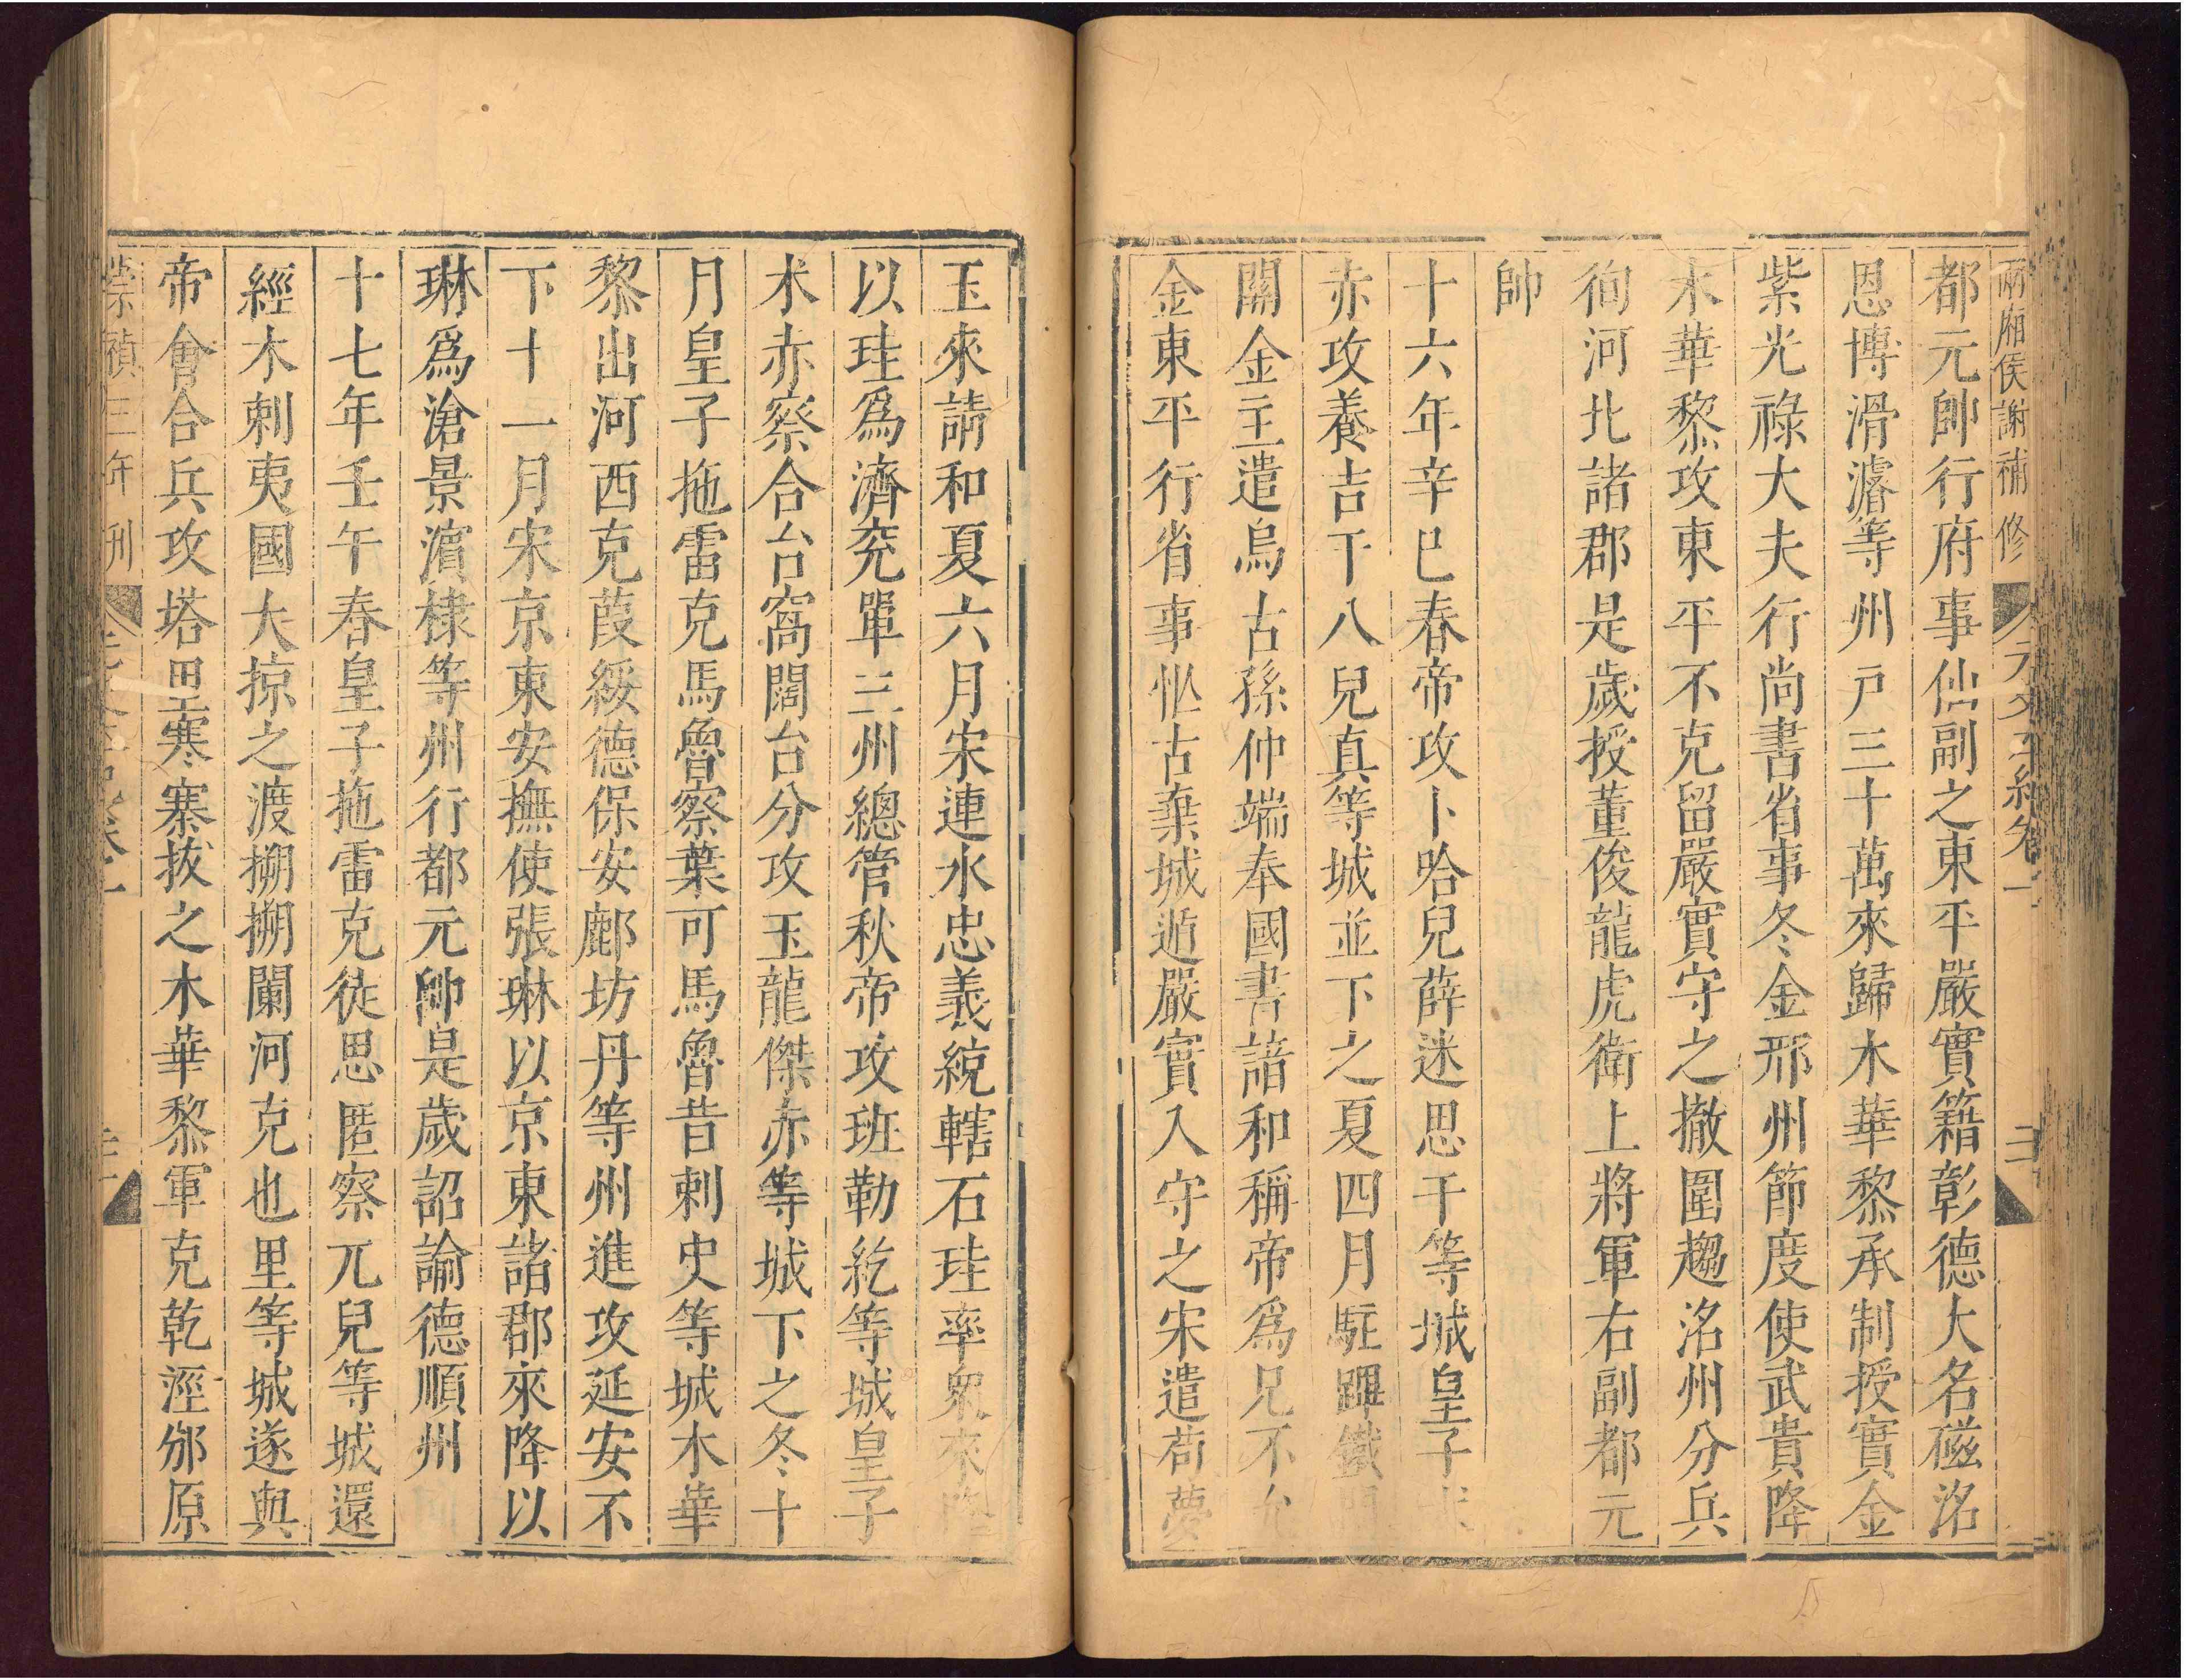 兩廂侯謝補修
元史本紀卷一
都元帥行府事仙副之東平嚴實籍彰德大名磁洺
恩博滑濬等州戸三十萬來歸木華黎承制授實金
紫光祿大夫行尚書省事冬金邢州節度使武貴降
木華黎攻東平不克留嚴實守之撤圍趨洺州分兵
徇河北諸郡是歲授董俊龍虎衛上將軍右副都元
帥
十六年辛巳春帝攻卜哈兒薛迷思干等城皇子朮
赤攻養吉干八兒真等城並下之夏四月駐蹕鐵門
關金主遣烏古孫仲端奉國書請和稱帝爲兄不允
金東平行省事忙古棄城遁嚴實入守之宋遣苟夢
玉來請和夏六月宋連水忠義統轄石珪率衆來降
以珪爲濟兖單三州總管秋帝攻班勒紇等城皇子
朮赤察合台窩闊台分攻玉龍傑赤等城下之冬十
月皇子拖雷克馬魯察葉可馬魯昔剌史等城木華
黎出河西克葭綏德保安鄜坊丹等州進攻延安不
下十一月宋京東安撫使張琳以京東諸郡來降以
琳爲滄景濱棣等州行都元帥是歲詔諭德順州
十七年壬午春皇子拖雷克徒思匿察兀兒等城還
經木剌夷國大掠之渡搠搠闌河克也里等城遂與
帝會合兵攻塔里寒寨拔之木華黎軍克乾涇邠原
崇禎三年刊